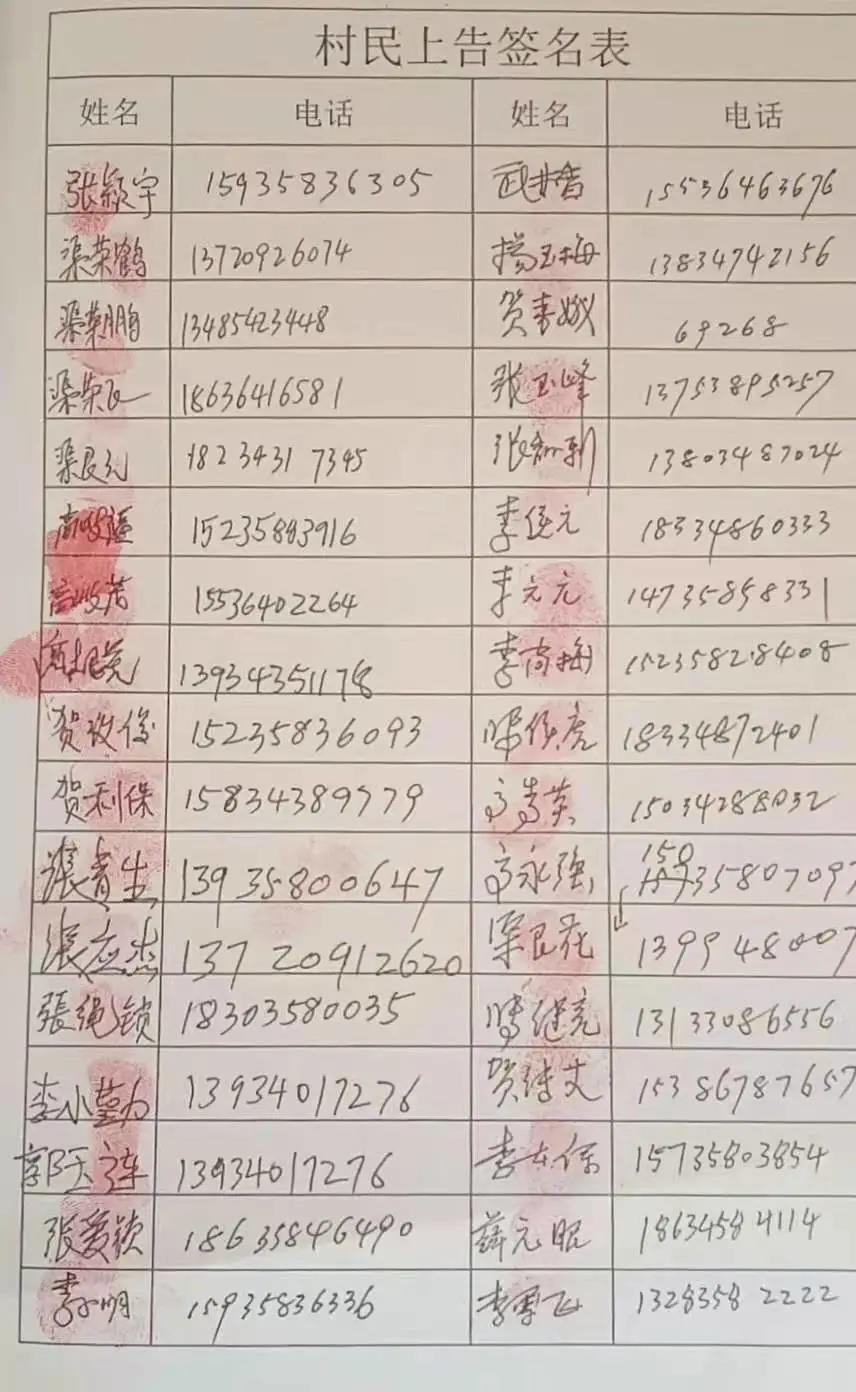 村民上告签名表
姓名 电话 姓名 电话
张颖宇 15935836305 15536463676
渠荣鹤 13720926074 杨玉梅 13834742156
渠朝鹏 13485423448 贺春娥 69268
渠荣 18636416581 张玉峰 13753895257
渠良元 18234317345 张 新 13803487024
高 15235893916 李 元 18334860333
高峻茂 15536402264 李元元 14735858331
13934351178 李高梅 15235828408
贺改俊 15235836093 虎 18334872401
贺利保 15834389779 高 英 15034288032
張青生 13935800647 高永强 150
35807097
張应杰 13720912620 渠良花 139948007
張绳锁 18303580035 继亮 13133086556
李小勤 13934017276 贺 文 15386787657
郭玉连 13934017276 李 保 15735803854
张爱锁 18635846490 薛元眼 18634584114
李小明 15935836336 李军飞 13283582222